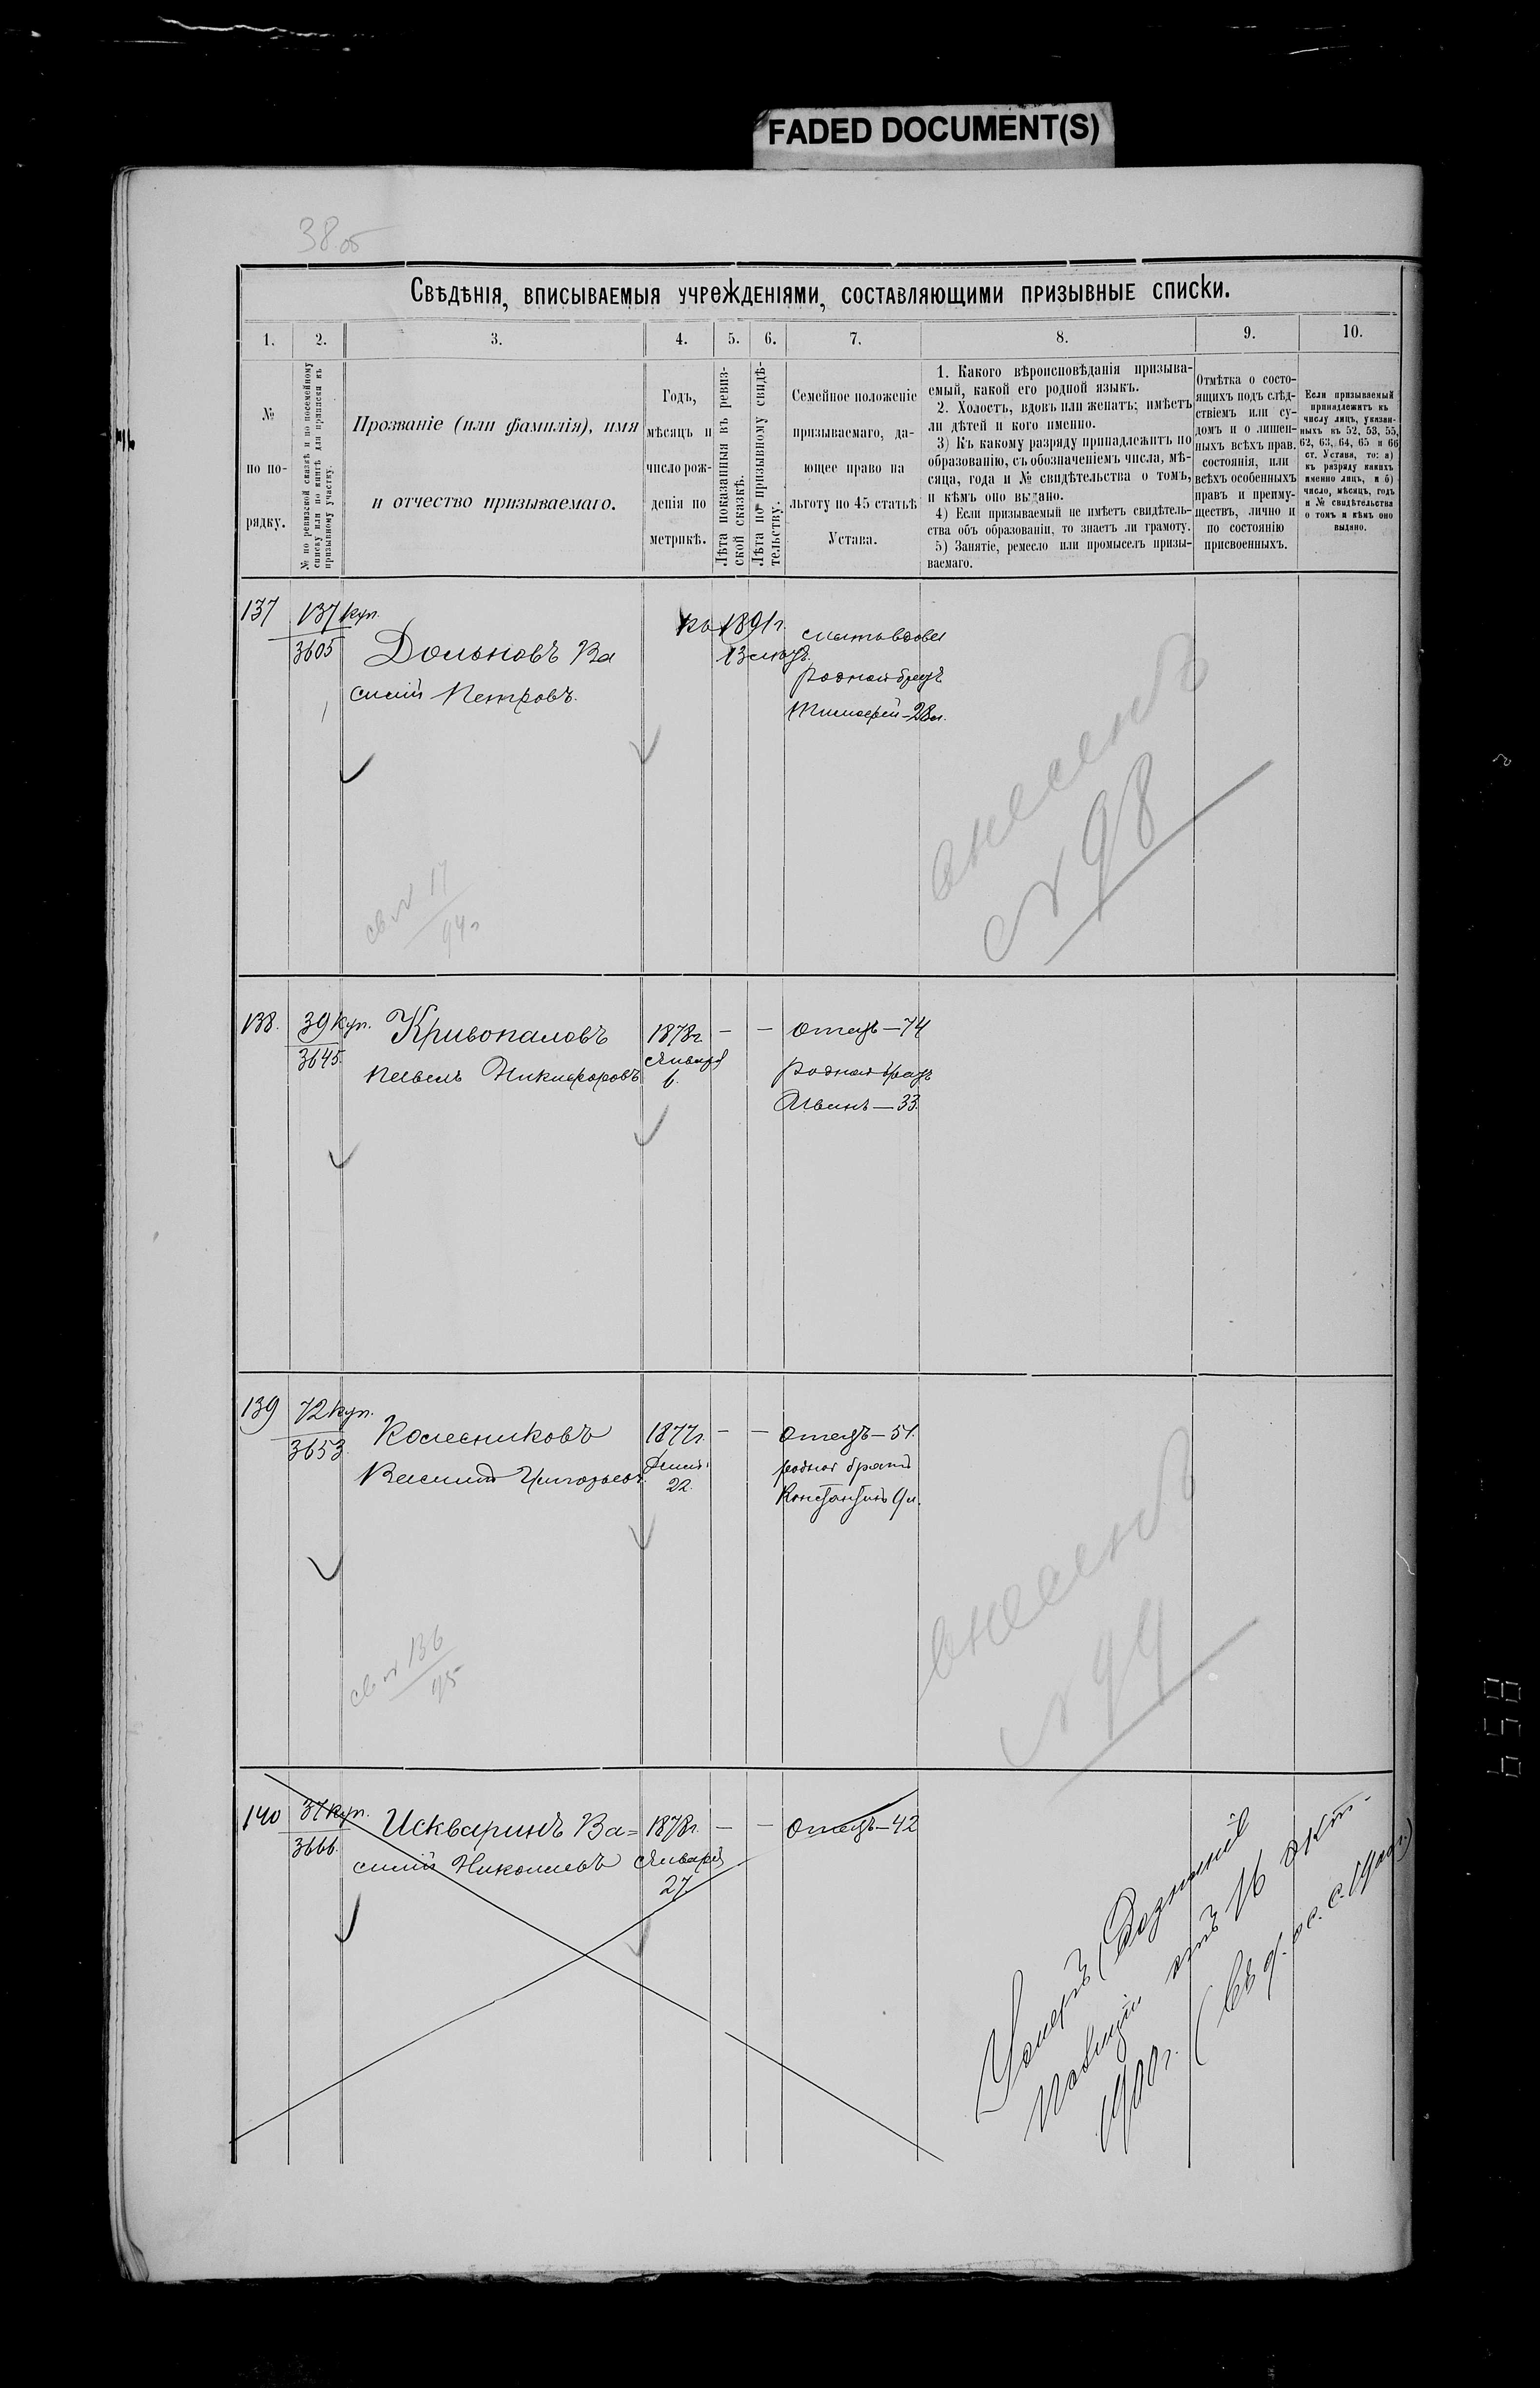 FADED DOCUMENT(S)
38 об
Свѣдѣнія, вписываемыя учрежденіями, составляющими призывные списки.
1. 2. 3. 4. 5. 6. 7. 8. 9. 10.
№
по по-
рядку.
№ по ревизской сказкѣ и по посемейному
списку или по книгѣ для приписки къ
призывному участку.
Прозваніе (или фамилія), имя
и отчество призываемаго.
Годъ,
мѣсяцъ и
число рож-
денія по
метрикѣ.
Лѣта показанныя въ ревиз-
ской сказкѣ.
Лѣта по призывному свидѣ-
тельству.
Семейное положеніе
призываемаго, да-
ющее право на
льготу по 45 статьѣ
Устава.
1. Какого вѣроисповѣданія призыва-
емый, какой его родной языкъ.
2. Холостъ, вдовъ или женатъ; имѣетъ
ли дѣтей и кого именно.
3) Къ какому разряду принадлежитъ по
образованію, съ обозначеніемъ числа, мѣ-
сяца, года и № свидѣтельства о томъ,
и кѣмъ оно выдано.
4) Если призываемый не имѣетъ свидѣтель-
ства объ образованіи, то знаетъ ли грамоту.
5) Занятіе, ремесло или промыселъ призы-
ваемаго.
Отмѣтка о состо-
ящихъ подъ слѣд-
ствіемъ или су-
домъ и о лишен-
ныхъ всѣхъ прав.
состоянія, или
всѣхъ особенныхъ
правъ и преиму-
ществъ, лично и
по состоянію
присвоенныхъ.
Если призываемый
принадлежитъ къ
числу лицъ, указан-
ныхъ въ 52, 53, 55,
62, 63, 64, 65 и 66
ст. Устава, то: а)
къ разряду какихъ
именно лицъ, и б)
число, мѣсяцъ, годъ
и № свидѣтельства
о томъ и кѣмъ оно
выдано.
137 137 куп.
3605
Ва
силій Петровъ.
къ 1891 г.
13
родной братъ
Тимофей - 28 л.
внесенъ
№ 98
св № 17
94 г
138. 39 куп.
3645.
Кривопаловъ
Павелъ Никифоровъ
1878 г.
Января
— — отецъ — 74
родной братъ
Иванъ — 33.
139 72 куп.
3653.
Колесниковъ
Василій Григорьевъ.
1877 г.
22.
— — отецъ — 51.
родной братъ
Константинъ 9 л.
внесенъ
№ 99
св № 136
95
140 37 куп.
3666.
Искваринъ Ва=
силій Николаевъ
1878 г.
Января
27.
— — отецъ — 42
Умеръ (Дознаніе
полиціи отъ 16 окт.
1900 г.
859